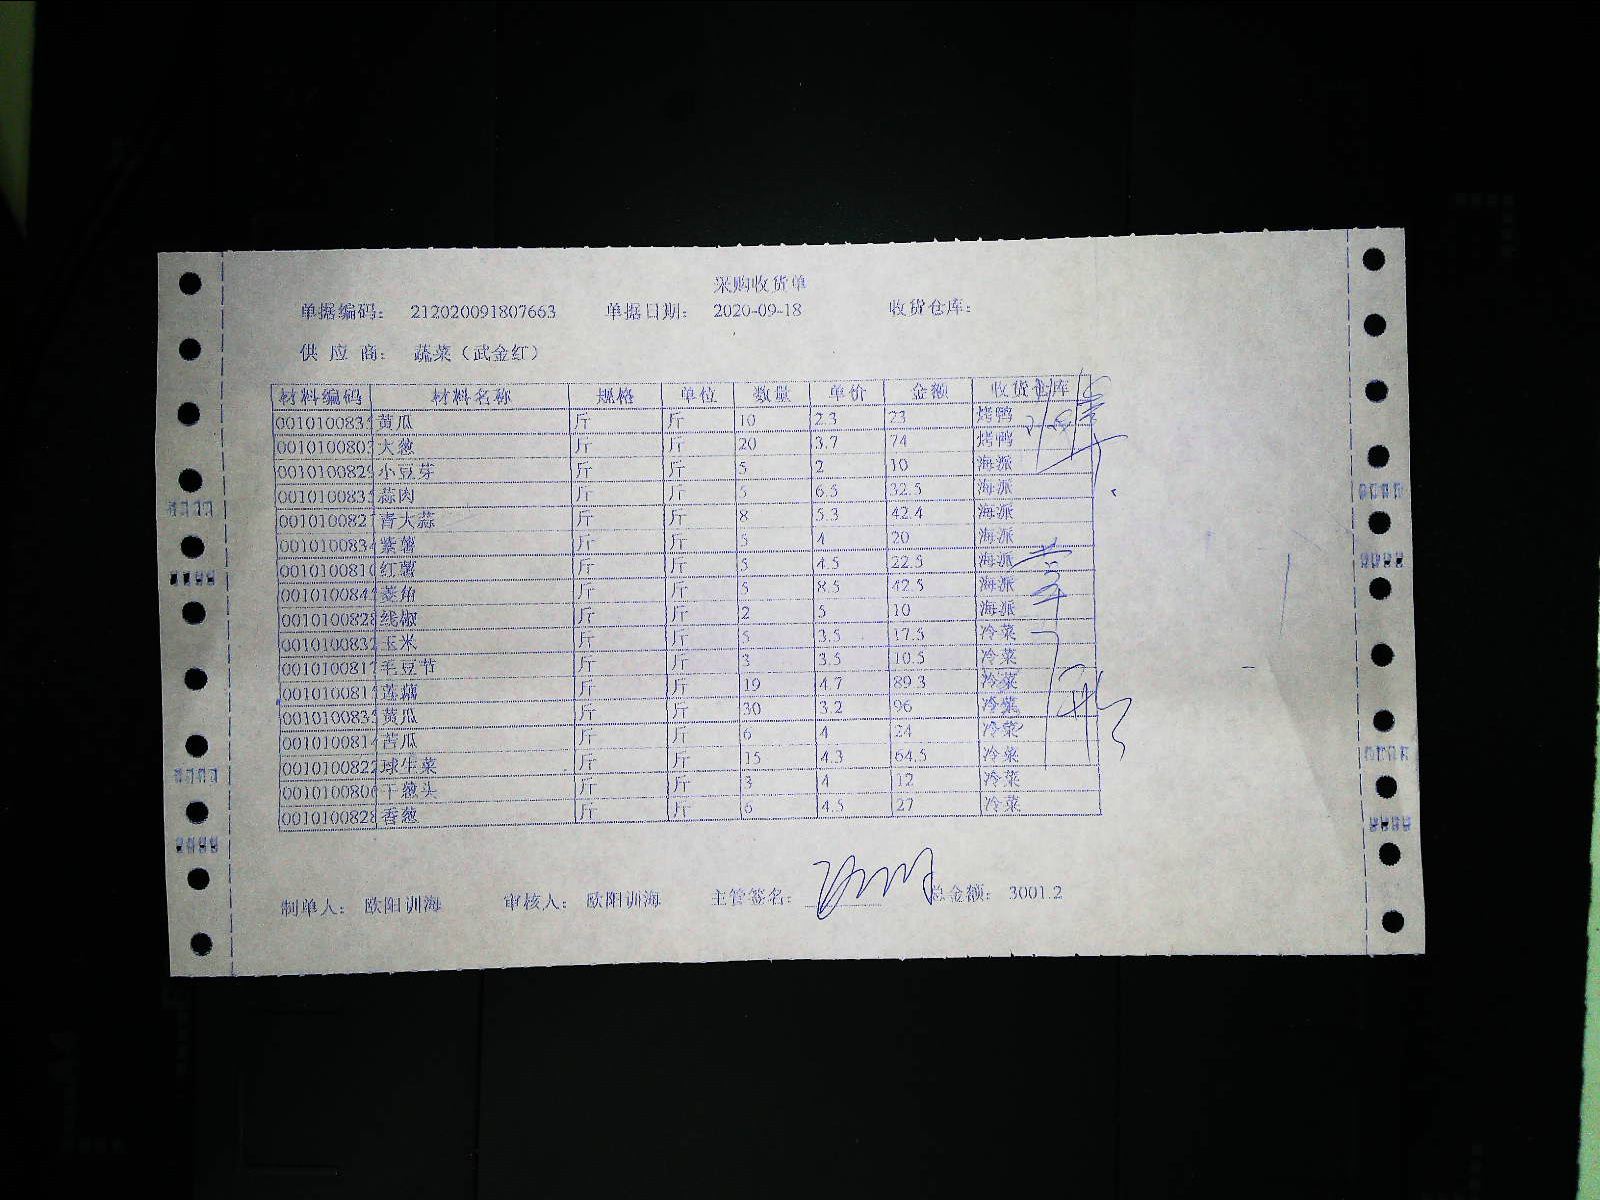 采购收货单
单据编码： 212020091807663 单据日期： 2020-09-18 收货仓库：
供 应 商： 蔬菜（武金红）
材料编码 材料名称 规格 单位 数量 单价 金额 收货仓库
0010100835 黄瓜 斤 斤 10 2.3 23 烤鸭
0010100803 大葱 斤 斤 20 3.7 74 烤鸭
0010100829 小豆芽 斤 斤 5 2 10 海派
0010100835 蒜肉 斤 斤 5 6.5 32.5 海派
001010082 青大蒜 斤 斤 8 5.3 42.4 海派
0010100834 紫薯 斤 斤 5 4 20 海派
001010081 红薯 斤 斤 5 4.5 22.5 海派
001010084 菱角 斤 斤 5 8.5 42.5 海派
0010100828 线椒 斤 斤 2 5 10 海派
001010083 玉米 斤 斤 5 3.5 17.5 冷菜
001010081 毛豆节 斤 斤 3 3.5 10.5 冷菜
001010081 莲藕 斤 斤 19 4.7 89.3 冷菜
0010100835 黄瓜 斤 斤 30 3.2 96 冷菜
0010100814 苦瓜 斤 斤 6 4 24 冷菜
0010100822 球生菜 斤 斤 15 4.3 64.5 冷菜
0010100806 干葱头 斤 斤 3 4 12 冷菜
0010100828 香葱 斤 斤 6 4.5 27 冷菜
制单人： 欧阳训海 审核人： 欧阳训海 主管签名： 总金额： 3001.2